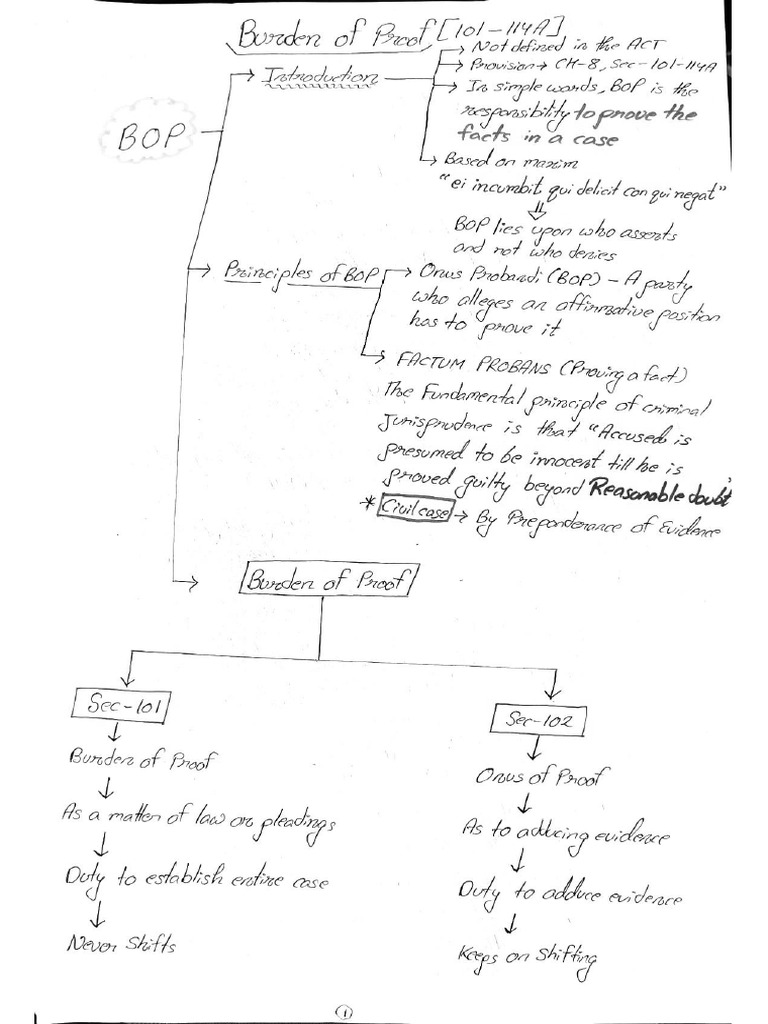 Burden of Proof [101-114A]
BOP
Introduction
Not defined in the ACT
Provision → CH-8, Sec-101-114A
In simple words, BOP is the
responsibility to prove the
facts in a case
Based on maxim
"ei incumbit qui delicit con qui negat"
BOP lies upon who asserts
and not who denies
Principles of BOP
Onus Probandi (BOP) - A party
who alleges an affirmative position
has to prove it
FACTUM PROBANS (Proving a fact)
The Fundamental principle of criminal
Jurisprudence is that "Accused is
presumed to be innocent till he is
proved guilty beyond Reasonable doubt"
* Civil case → By Preponderance of Evidence
Burden of Proof
Sec-101
Burden of Proof
As a matter of law or pleadings
Duty to establish entire case
Never Shifts
Sec-102
Onus of Proof
As to adducing evidence
Duty to adduce evidence
Keeps on Shifting
1